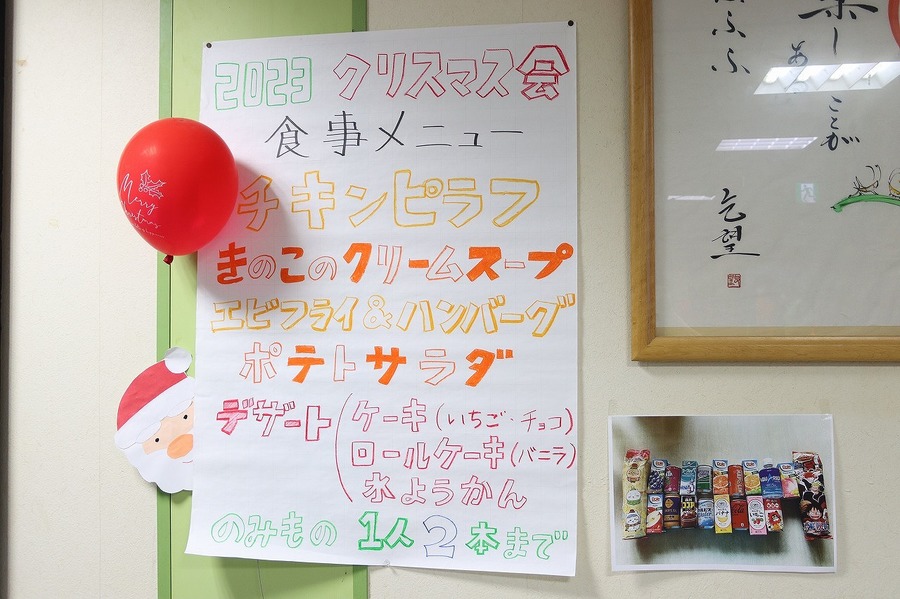 2023 クリスマス会
食事メニュー
チキンピラフ
きのこのクリームスープ
エビフライ&ハンバーグ
ポテトサラダ
デザート
ケーキ(いちご・チョコ)
ロールケーキ(バニラ)
水ようかん
のみもの 1人2本まで
Merry
Christmas
楽し
ことが
ふふ